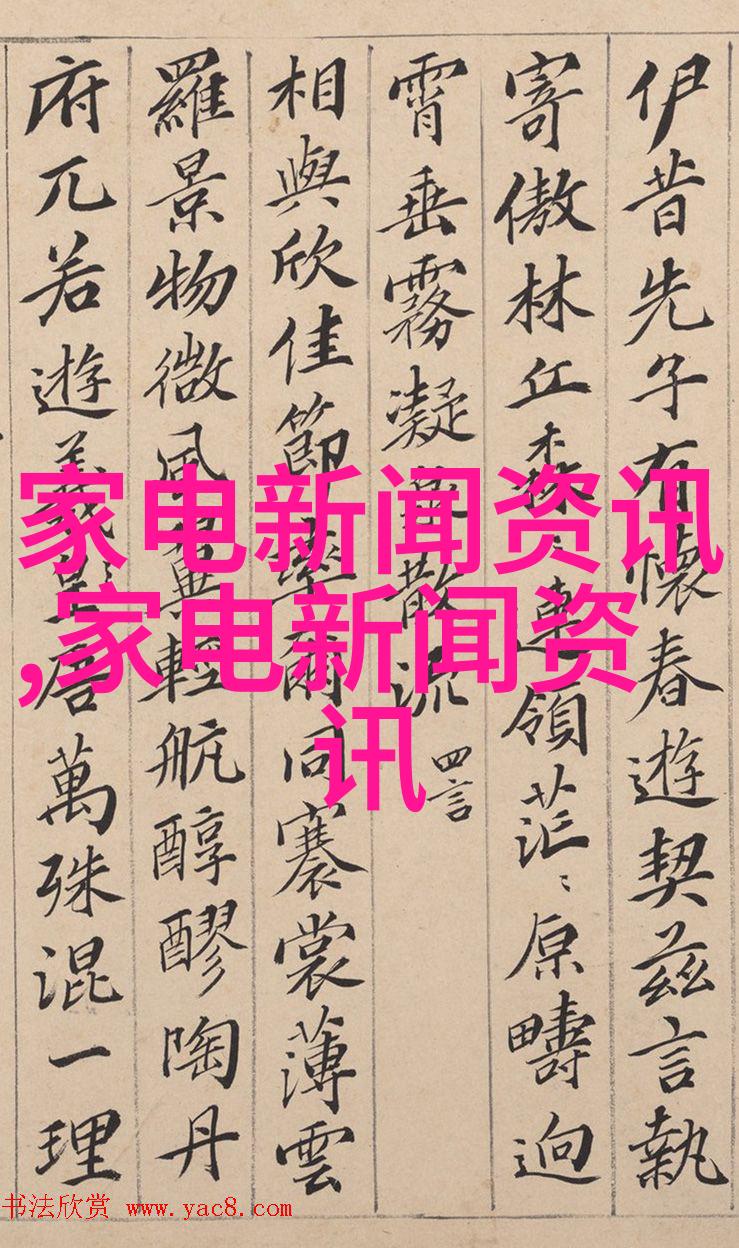 伊昔先子有懷春遊契茲言執
寄傲林丘森〻連領茫〻原疇迥
霄垂霧凝泉散流 四言
相與欣佳節率爾同褰裳薄雲
羅景物微風翼輕航醇醪陶丹
府兀若遊羲唐萬殊混一理
家电新闻资讯
,家电新闻资
讯
书法欣赏 www.yac8.com